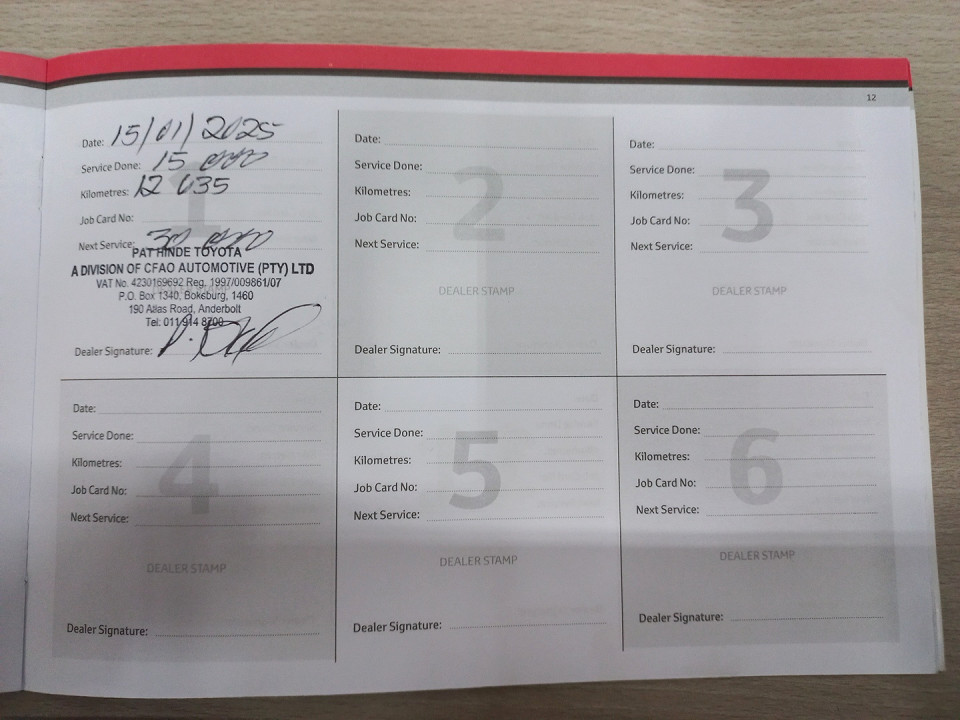 12
Date: 15/01/2025
Service Done: 15 000
Kilometres: 12 635
Job Card No:
Next Service: 30 000
1
PAT HINDE TOYOTA
A DIVISION OF CFAO AUTOMOTIVE (PTY) LTD
VAT No. 4230169692 Reg. 1997/009861/07
P.O. Box 1340, Boksburg, 1460
190 Atlas Road, Anderbolt
Tel: 011 914 8700
Dealer Signature:
Date:
Service Done:
Kilometres:
Job Card No:
Next Service:
2
DEALER STAMP
Dealer Signature:
Date:
Service Done:
Kilometres:
Job Card No:
Next Service:
3
DEALER STAMP
Dealer Signature:
Date:
Service Done:
Kilometres:
Job Card No:
Next Service:
4
DEALER STAMP
Dealer Signature:
Date:
Service Done:
Kilometres:
Job Card No:
Next Service:
5
DEALER STAMP
Dealer Signature:
Date:
Service Done:
Kilometres:
Job Card No:
Next Service:
6
DEALER STAMP
Dealer Signature: